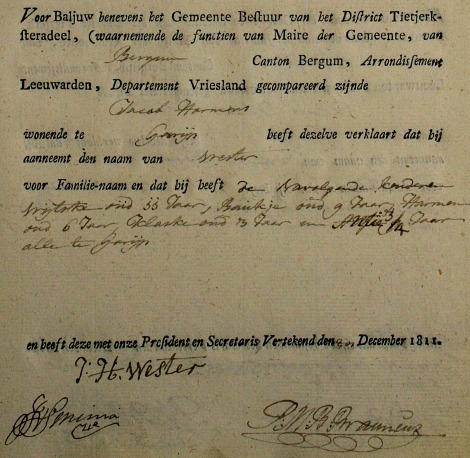 Voor Baljuw benevens het Gemeente Bestuur van het District Tietjerk-
steradeel, (waarnemende de functien van Maire der Gemeente, van
Bergum Canton Bergum, Arrondissement
Leeuwarden, Departement Vriesland gecompareerd zijnde
Jacob Harmens
wonende te Garijp heeft dezelve verklaart dat hij
aanneemt den naam van Wester
voor Familie-naam en dat hij heeft de Navolgende kinderen
oud Jaar, Baukje oud 9 Jaar, Harmen
oud 6 Jaar, Klaske oud 3 Jaar en Jaar
alle te Garijp
en heeft deze met onze President en Secretaris Vertekend den December 1811.
J. H. Wester